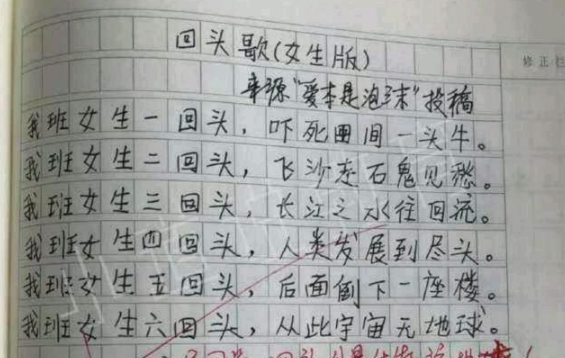 回头歌(女生版)
来源"爱本是泡沫"投稿
修正栏
我班女生一回头，吓死田间一头牛。
我班女生二回头，飞沙走石鬼见愁。
我班女生三回头，长江之水往回流。
我班女生四回头，人类发展到尽头。
我班女生五回头，后面倒下一座楼。
我班女生六回头，从此宇宙无地球。